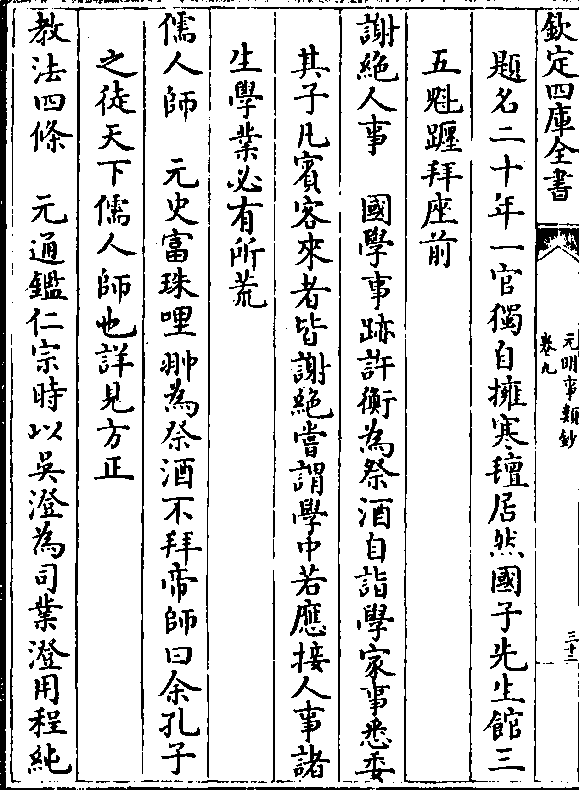 欽定四庫全書
元明事類鈔
卷九
三十二
題名二十年一官獨自擁寒氊居然國子先生館三
五魁躔拜座前
謝絶人事　國學事跡許衡為祭酒自詣學家事悉委
其子凡賓客來者皆謝絶嘗謂學中若應接人事諸
生學業必有所荒
儒人師　元史富珠哩翀為祭酒不拜帝師曰余孔子
之徒天下儒人師也詳見方正
教法四條　元通鑑仁宗時以吳澄為司業澄用程純